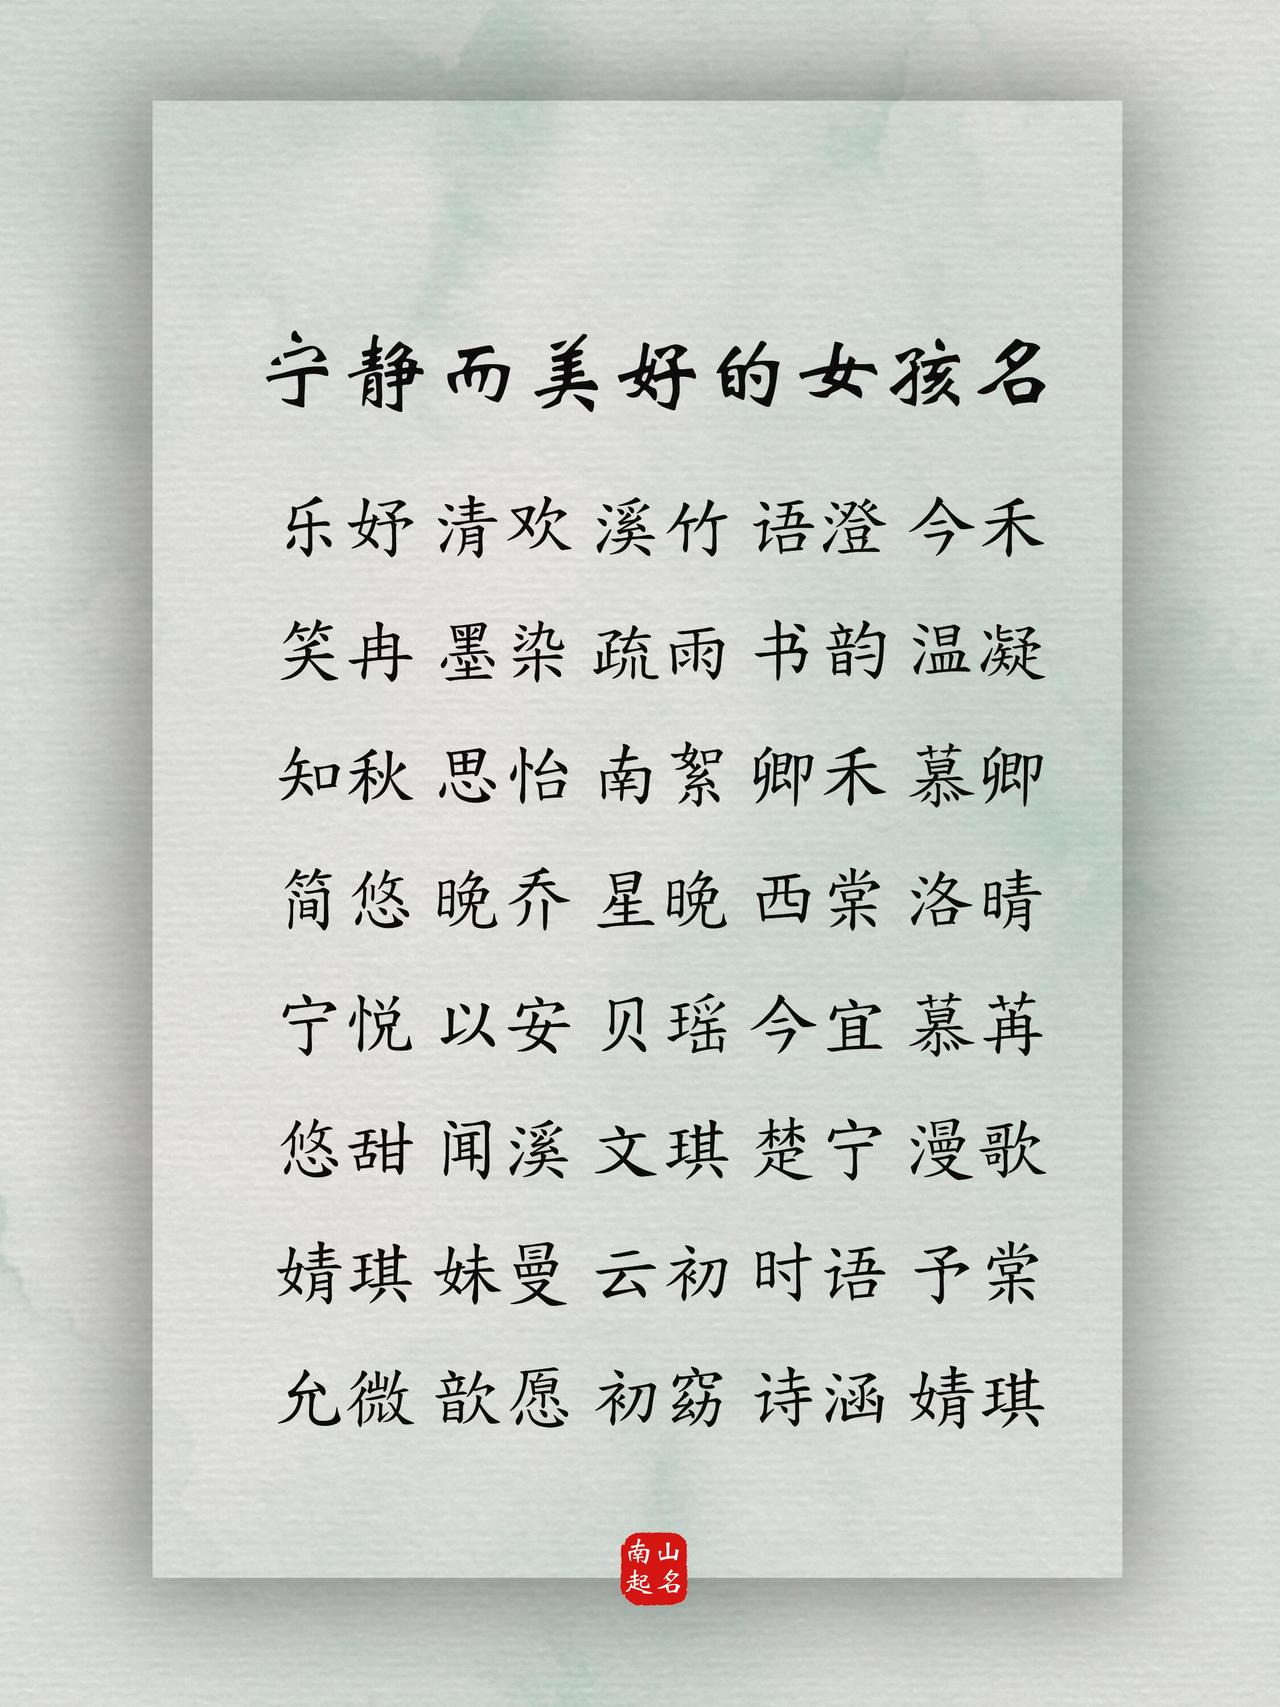 宁静而美好的女孩名
乐妤 清欢 溪竹 语澄 今禾
笑冉 墨染 疏雨 书韵 温凝
知秋 思怡 南絮 卿禾 慕卿
简悠 晚乔 星晚 西棠 洛晴
宁悦 以安 贝瑶 今宜 慕苒
悠甜 闻溪 文琪 楚宁 漫歌
婧琪 妹曼 云初 时语 予棠
允微 歆愿 初窈 诗涵 婧琪
南山
起名